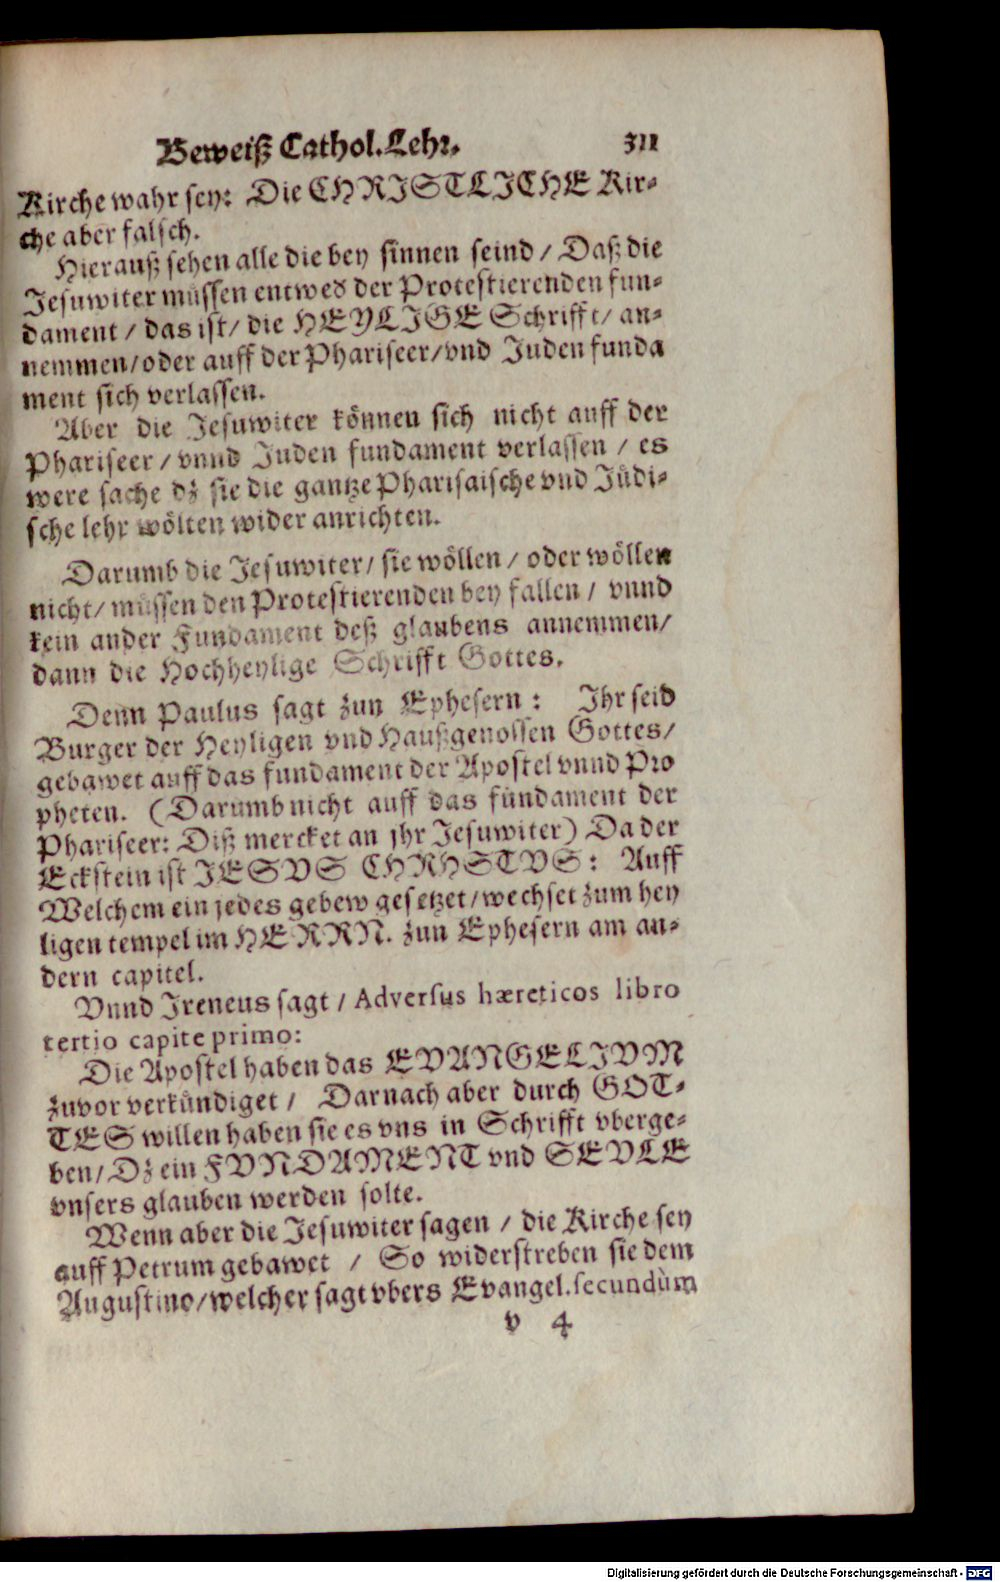 Beweiß Cathol. Lehr. 311
Kirche wahr sey: Die CHRISTLICHE Kir-
che aber falsch.
Hierauß sehen alle die bey sinnen seind / Daß die
Jesuwiter müssen entwed der Protestierenden fun-
dament / das ist / die HEYLIGE Schrifft / an-
nemmen / oder auff der Phariseer / vnd Juden funda
ment sich verlassen.
Aber die Jesuwiter können sich nicht auff der
Phariseer / vnnd Juden fundament verlassen / es
were sache dz sie die gantze Pharisaische vnd Jüdi-
sche lehr wölten wider anrichten.
Darumb die Jesuwiter / sie wöllen / oder wöllen
nicht / müssen den Protestierenden bey fallen / vnnd
kein ander Fundament deß glaubens annemmen /
dann die Hochheylige Schrifft Gottes.
Denn Paulus sagt zun Ephesern : Ihr seid
Burger der Heyligen vnd Haußgenossen Gottes /
gebawet auff das fundament der Apostel vnnd Pro
pheten. (Darumb nicht auff das fundament der
Phariseer: Diß mercket an jhr Jesuwiter) Da der
Eckstein ist JESVS CHRHSTVS : Auff
Welchem ein jedes gebew gesetzet / wechset zum hey
ligen tempel im HERRN. zun Ephesern am an-
dern capitel.
Vnnd Ireneus sagt / Adversus hæreticos libro
tertio capite primo:
Die Apostel haben das EVANGELIVM
zuvor verkündiget / Darnach aber durch GOT-
TES willen haben sie es vns in Schrifft vberge-
ben / Dz ein FVNDAMENT vnd SEVLE
vnsers glauben werden solte.
Wenn aber die Jesuwiter sagen / die Kirche sey
auff Petrum gebawet / So widerstreben sie dem
Augustino / welcher sagt vbers Evangel. secundùm
v 4
Digitalisierung gefördert durch die Deutsche Forschungsgemeinschaft - DFG